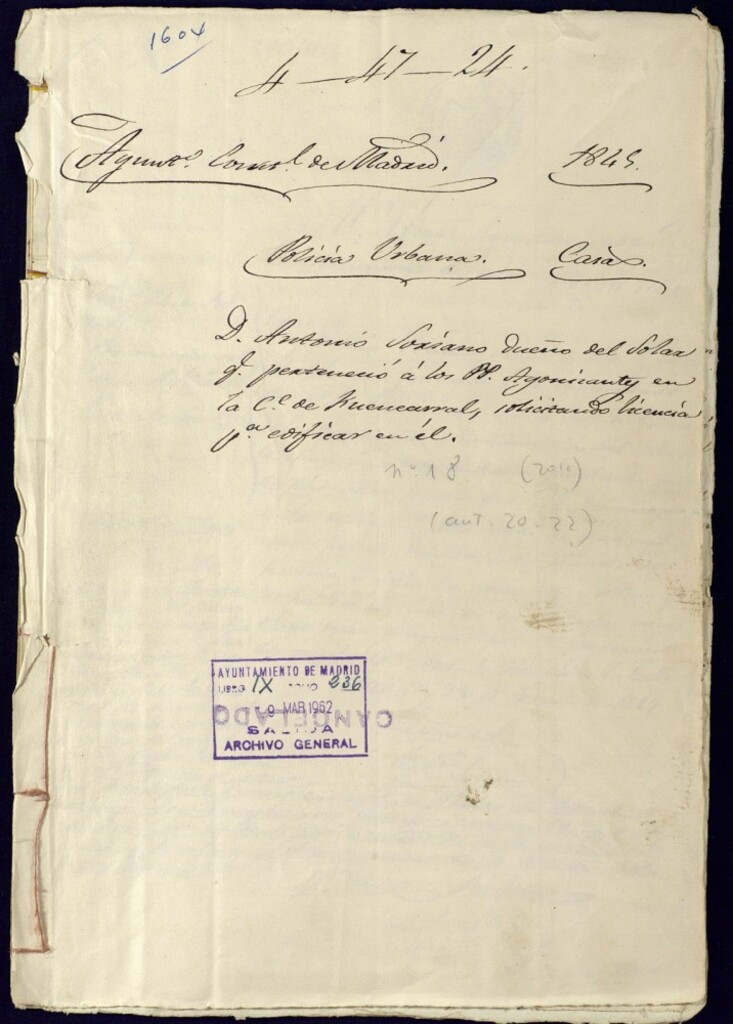 1604
4-47-24.
Ayunto. Consl. de Madrid. 1845.
Policia Urbana. Casas.
D. Antonio Soriano dueño del Solar
q. perteneció á los PP. Agonizantes en
la Ce. de Fuencarral, solicitando licencia
pa. edificar en él.
nº 18
(ant. 20-22)
AYUNTAMIENTO DE MADRID
LIBRO IX 236
9 MAR 1962
CANCELADO
SALIDA
ARCHIVO GENERAL